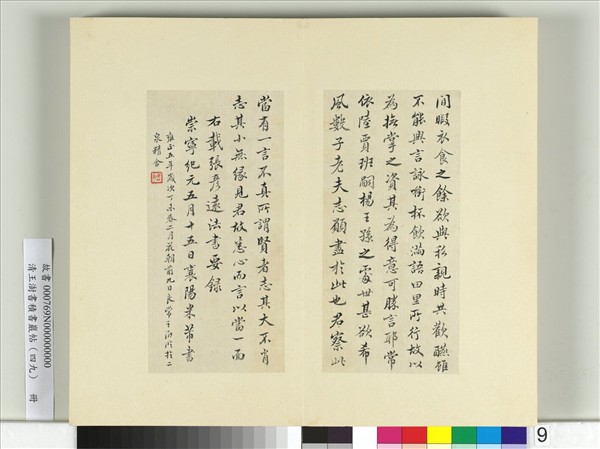 間暇衣食之餘欲與私親時共歡讌雖
不能興言詠銜杯飲滿語田里所行故以
為撫掌之資其為得意可勝言耶常
依陸賈班嗣楊王孫之處世甚欲希
風數子老夫志願盡於此也君察此
當有一言不真所謂賢者志其大不肖
志其小無緣見君故悉心而言以當一面
右載張彥遠法書要錄
崇寧紀元五月十五日襄陽米芾書
雍正五年歲次丁未春二月花朝前九日良常王澍臨於二
泉精舍
故書 000769N000000000
清王澍書積書巖帖(四九) 冊
9